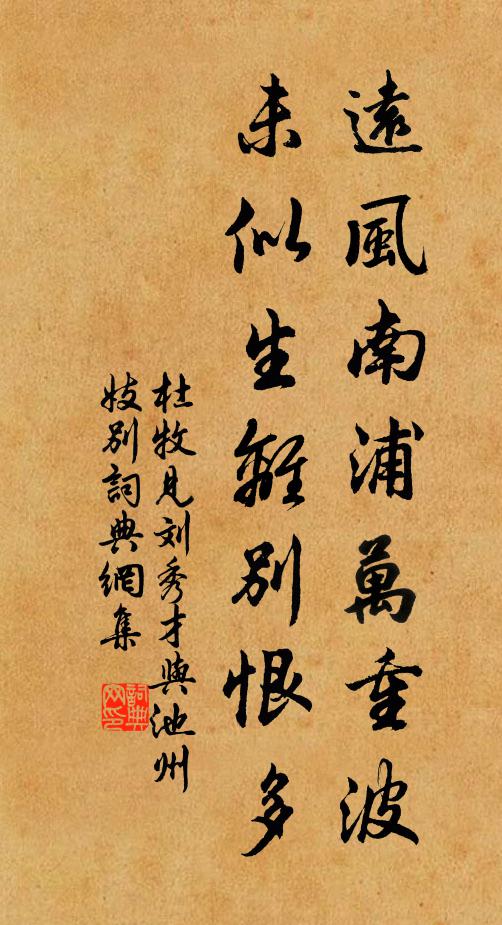 遠風南浦萬重波
未似生離別恨多
杜牧見刘秀才與池州
妓別詞典網集
詞典
网印